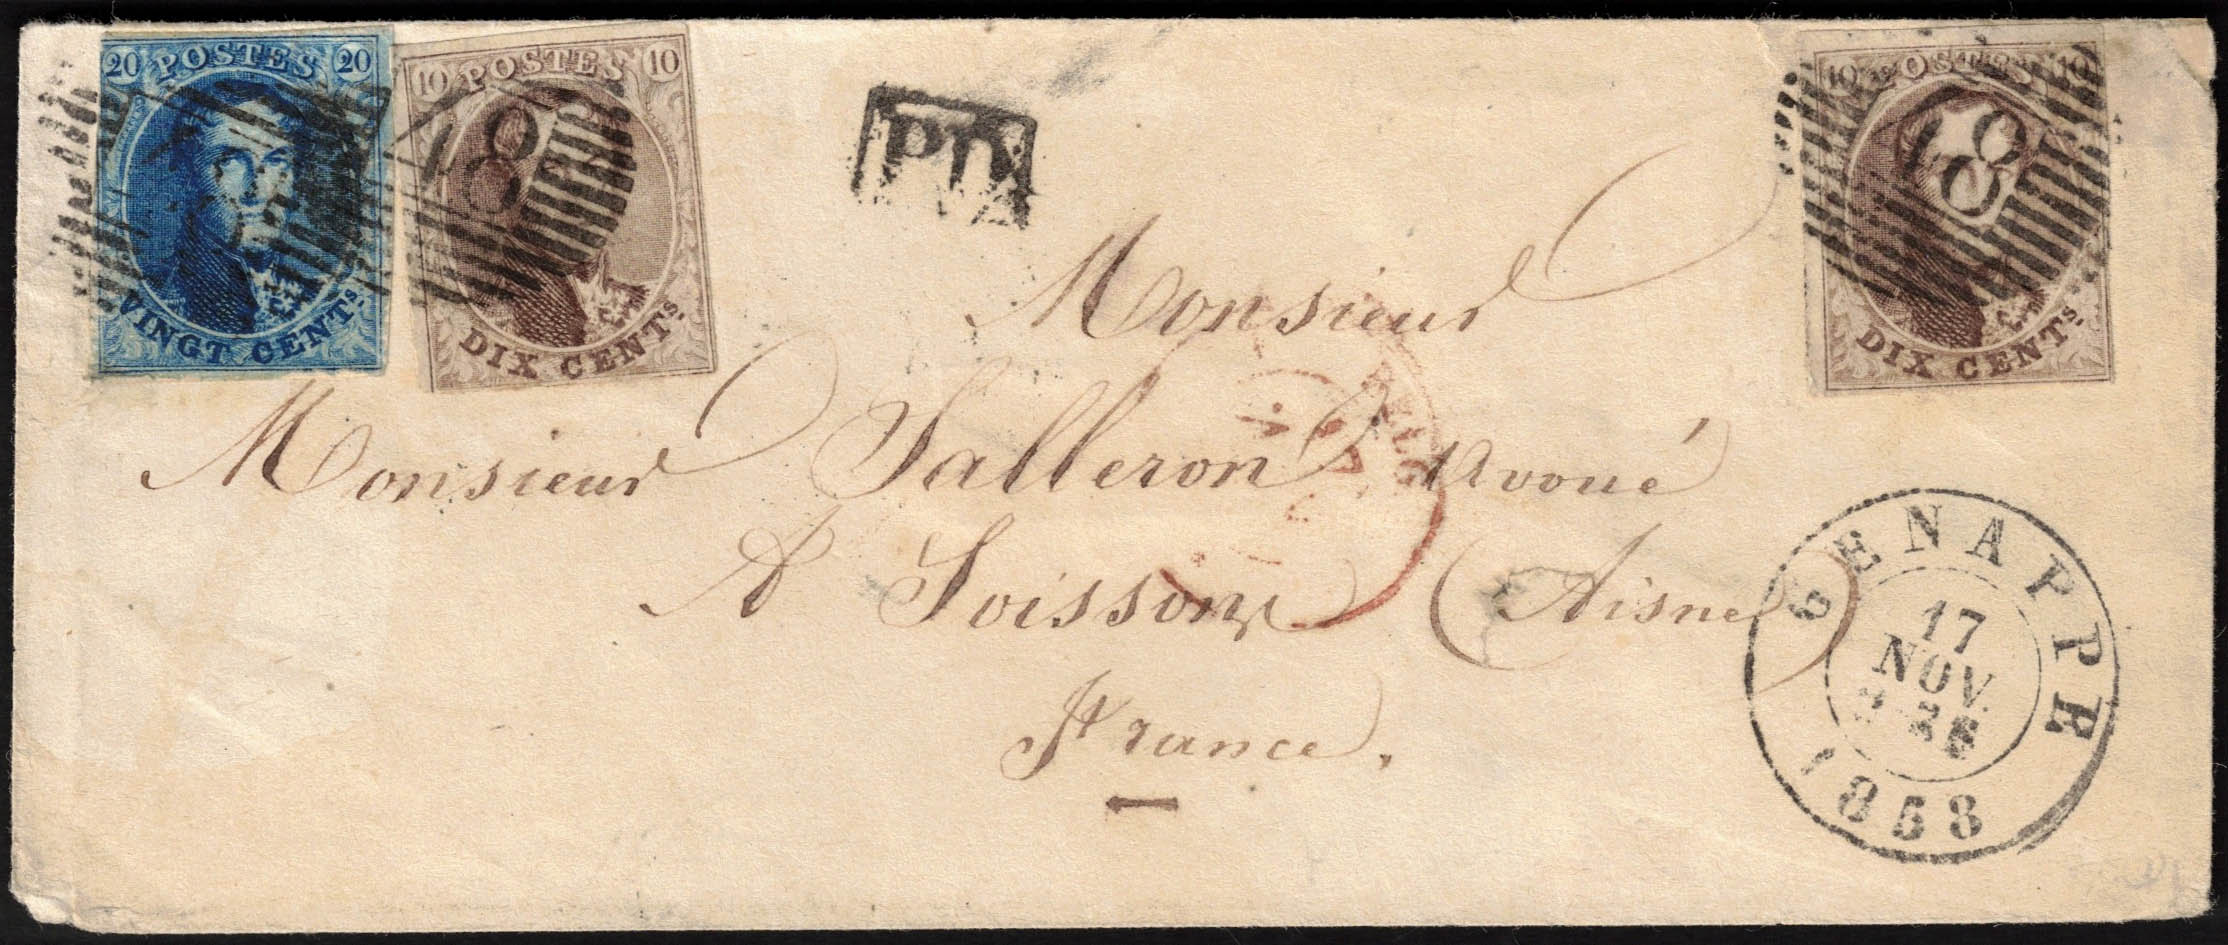 20 POSTES 20
VINGT CENTS.
10 POSTES 10
48
DIX CENTS.
PD
10 POSTES 10
48
DIX CENTS.
Monsieur
Monsieur Salleron Avoué
A Soissons (Aisne)
France.
GENAPPE
17
NOV.
1858